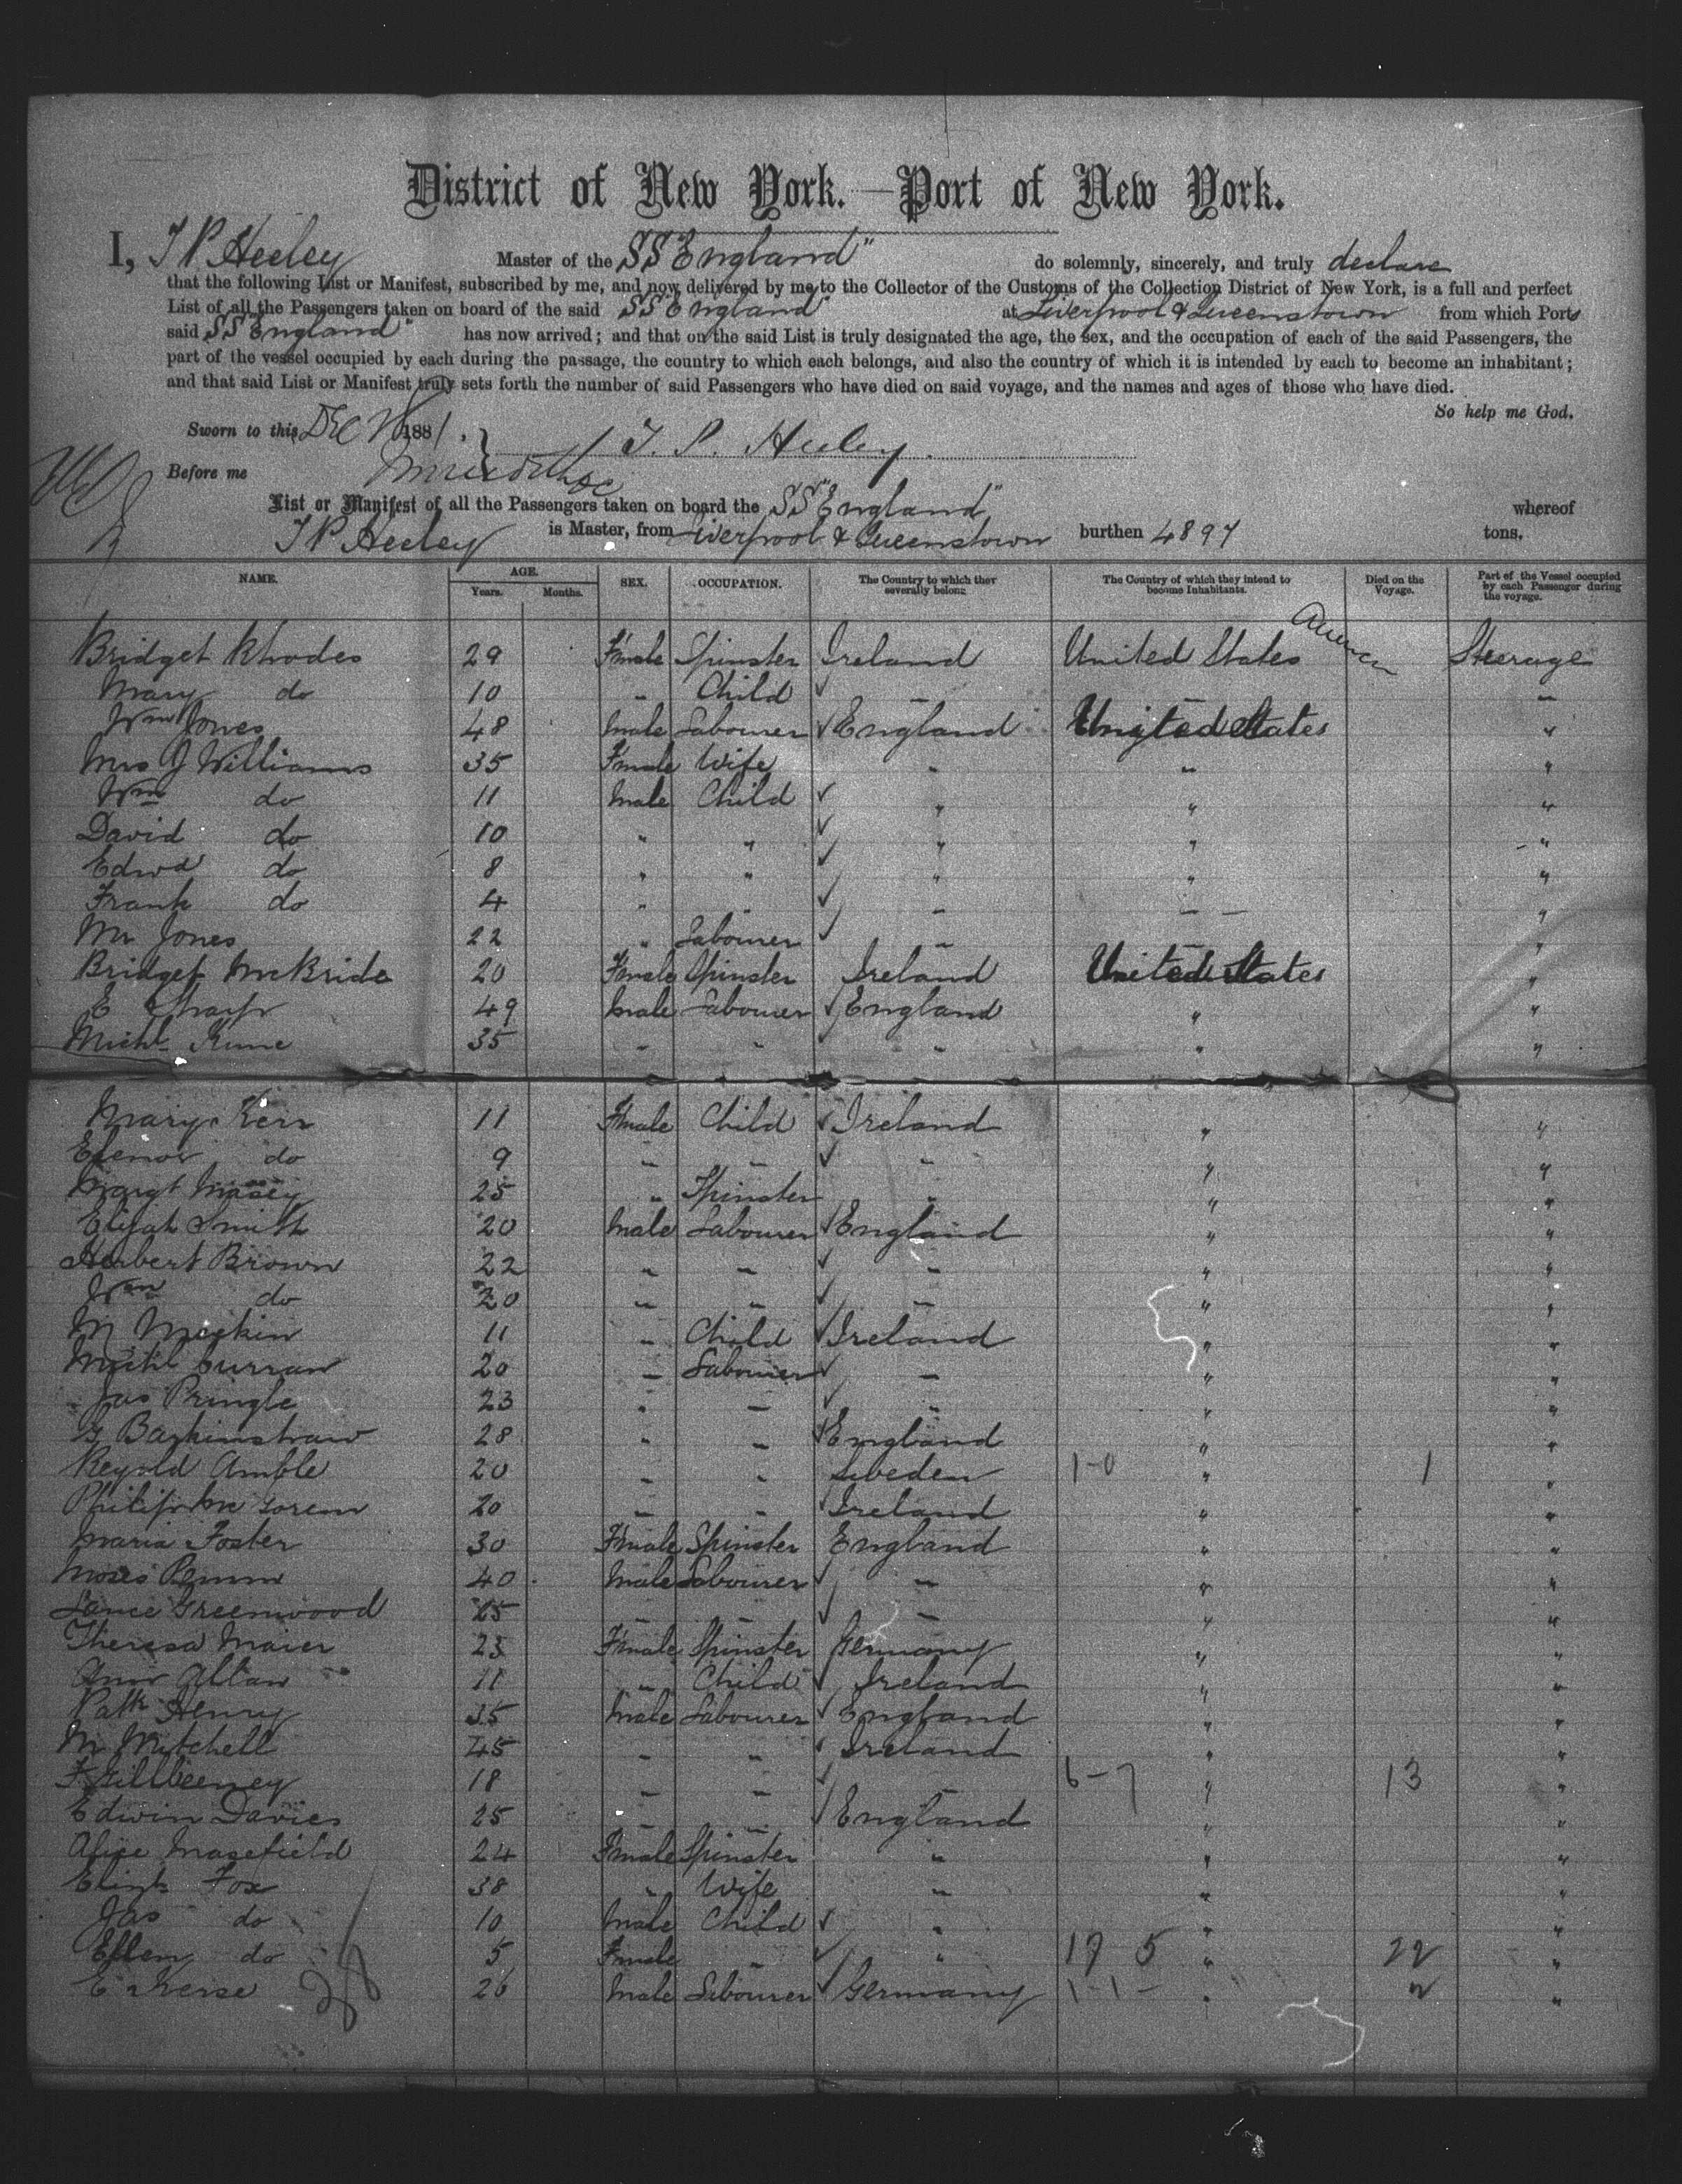 District of New York.—Port of New York.
I, T P Heeley Master of the SS "England" do solemnly, sincerely, and truly declare
that the following List or Manifest, subscribed by me, and now delivered by me to the Collector of the Customs of the Collection District of New York, is a full and perfect
List of all the Passengers taken on board of the said SS England at Liverpool & Queenstown from which Ports
said SS "England" has now arrived; and that on the said List is truly designated the age, the sex, and the occupation of each of the said Passengers, the
part of the vessel occupied by each during the passage, the country to which each belongs, and also the country of which it is intended by each to become an inhabitant;
and that said List or Manifest truly sets forth the number of said Passengers who have died on said voyage, and the names and ages of those who have died.
So help me God.
Sworn to this Dec 1881. T. P. Heeley
Before me
List or Manifest of all the Passengers taken on board the SS "England" whereof
T P Heeley is Master, from Liverpool & Queenstown burthen 4897 tons.
NAME. AGE. Years. Months. SEX. OCCUPATION. The Country to which they severally belong. The Country of which they intend to become Inhabitants. Died on the Voyage. Part of the Vessel occupied by each Passenger during the voyage.
Bridget Rhodes 29 Female Spinster Ireland United States Steerage
Mary do 10 " Child "
Wm Jones 48 Male Labourer England United States "
Mrs J Williams 35 Female Wife " " "
Wm do 11 Male Child " " "
David do 10 " " " " "
Edwd do 8 " " " " "
Frank do 4 " " " " "
Mr Jones 22 " Labourer " "
Bridget McBride 20 Female Spinster Ireland United States "
E Sharp 49 Male Labourer England " "
Michl 35 " " " " "
Mary Kerr 11 Female Child Ireland " "
Elenor do 9 " " " " "
Margt Massey 25 " Spinster " " "
Elijah Smith 20 Male Labourer England " "
Herbert Brown 22 " " " " "
Wm do 20 " " " " "
M Meekin 11 " Child Ireland " "
Michl Curran 20 " Labourer " " "
Jas Pringle 23 " " " " "
G 28 " " England " "
Amble 20 " " Sweden 1-0 " 1 "
Philip 20 " " Ireland " "
Maria Foster 30 Female Spinster England " "
Moses 40 Male Labourer " " "
Greenwood 25 " " " " "
Theresa Maier 23 Female Spinster Germany " "
Ann Allan 11 " Child Ireland " "
Patk Henry 35 Male Labourer England " "
M Mitchell 45 " " Ireland " "
F 18 " " 6-7 " 13 "
Edwin Davies 25 " " England " "
Alice Masefield 24 Female Spinster " " "
Elizth Fox 38 " Wife " " "
Jas do 10 Male Child " " "
Ellen do 5 Female " " 17 5 " 22 "
E 26 Male Labourer Germany 1-1- " 2 "